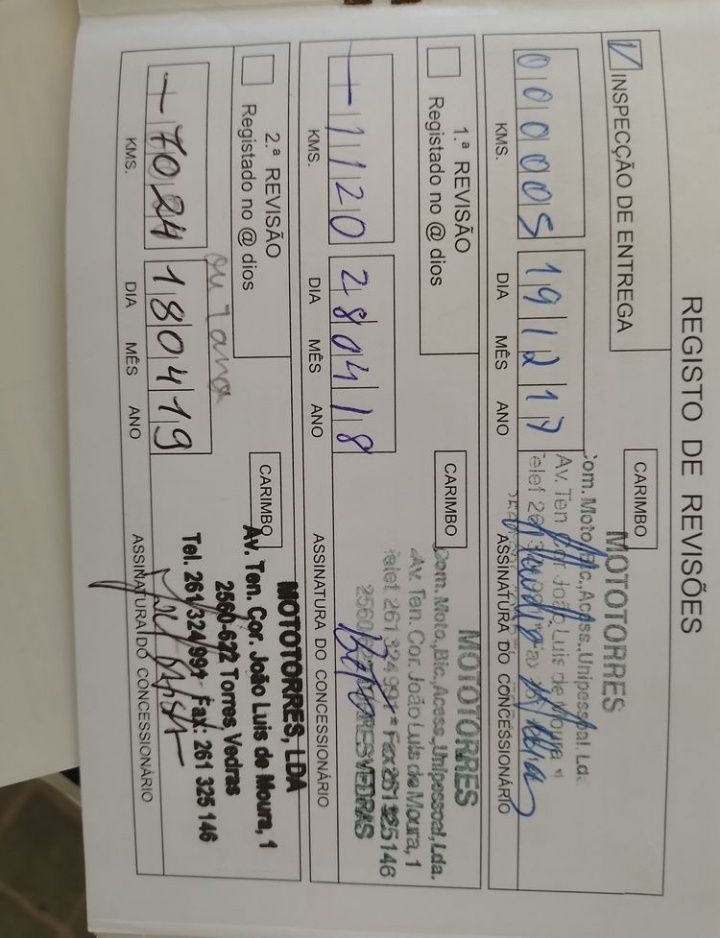 REGISTO DE REVISÕES
V INSPECÇÃO DE ENTREGA
CARIMBO
MOTOTORRES
Com. Moto.,Bic.,Acess.,Unipessoal. Lda.
Av. Ten. Cor. João Luis de Moura 1
000005 191217
KMS. DIA MÊS ANO ASSINATURA DO CONCESSIONÁRIO
1.ª REVISÃO
Registado no @ dios
CARIMBO
MOTOTORRES
Com. Moto.,Bic.,Acess.,Unipessoal,Lda.
Av. Ten. Cor. João Luis de Moura, 1
Telef 261 324 991 * Fax 261 325 146
2560-622 TORRES VEDRAS
1120 280418
KMS. DIA MÊS ANO ASSINATURA DO CONCESSIONÁRIO
2.ª REVISÃO
Registado no @ dios
ou 1 ano
CARIMBO
MOTOTORRES, LDA
Av. Ten. Cor. João Luis de Moura, 1
2560-622 Torres Vedras
Tel. 261 324 991 - Fax: 261 325 146
7024 180419
KMS. DIA MÊS ANO ASSINATURA DO CONCESSIONÁRIO